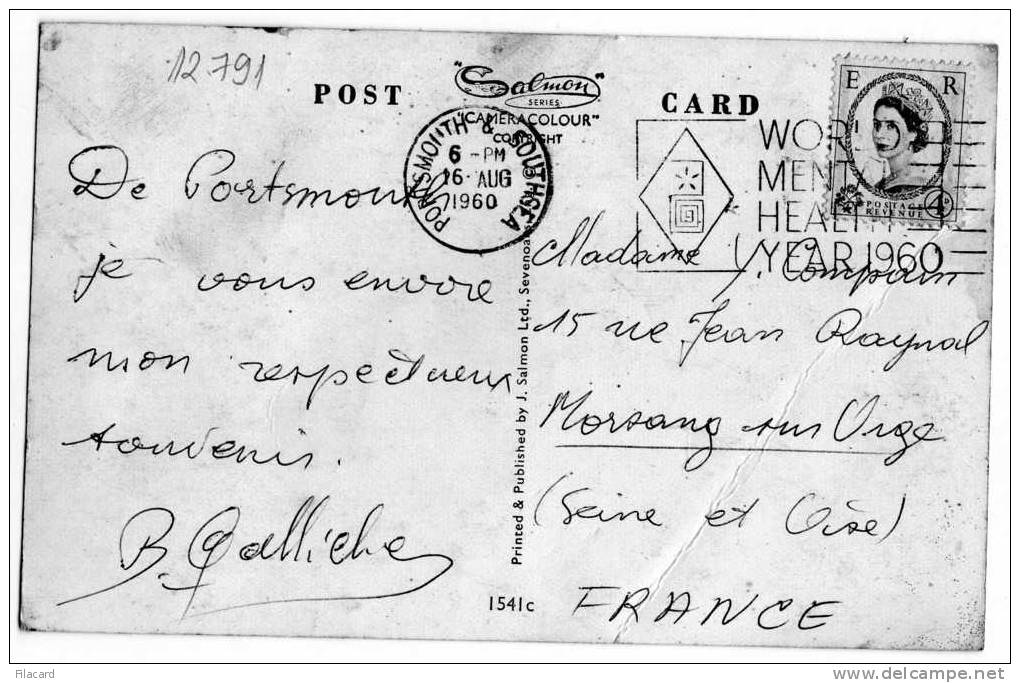 12791
POST CARD
"Salmon"
SERIES
"CAMERACOLOUR"
COPYRIGHT
PORTSMOUTH & SOUTHSEA
6 - PM
16 AUG
1960
WORLD
MEN
HEALTH
YEAR 1960
E R
POSTAGE
REVENUE
4D
De Portsmouth
je vous envoie
mon respectueux
souvenir.
B. Galliche
Madame Y. Compain
15 rue Jean Raynal
Morsang sur Orge
(Seine et Oise)
FRANCE
Printed & Published by J. Salmon Ltd., Sevenoaks
1541c
Filacard
www.delcampe.net